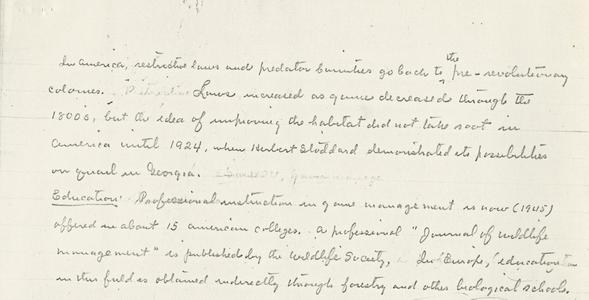 In America, restrictive laws and predator bounties go back to the pre-revolutionary
colonies. Laws increased as game decreased through the
1800s, but the idea of improving the habitat did not take root in
America until 1924, when Herbert Stoddard demonstrated its possibilities
on quail in Georgia.
Education: Professional instruction in game management is now (1945)
offered in about 15 American colleges. A professional "Journal of Wildlife
Management" is published by the Wildlife Society. In Europe, education
in this field is obtained indirectly through forestry and other biological schools.